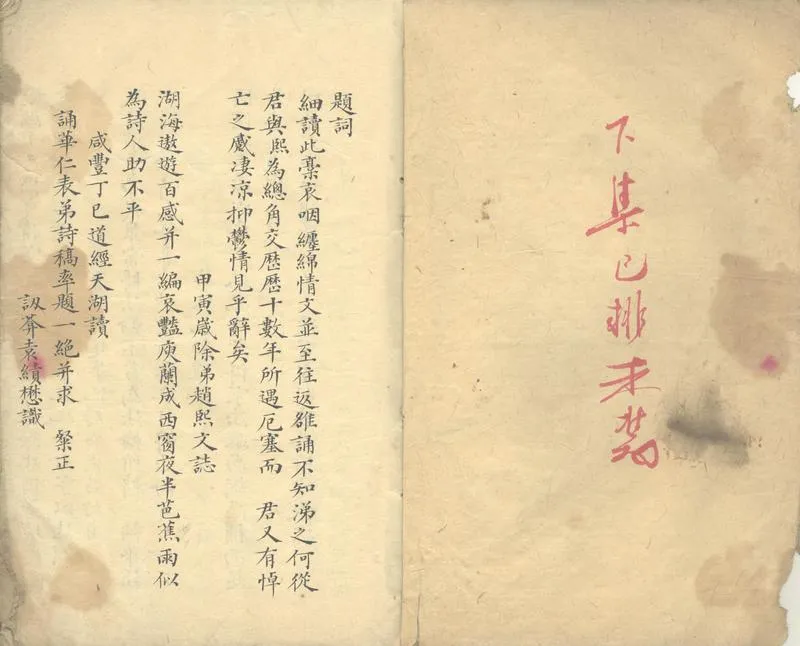 下集已排未
題詞
細讀此藁哀咽纏綿情文並至往返雒誦不知涕之何從
君與熙為總角交歷歷十數年所遇厄塞而 君又有悼
亡之慼凄凉抑鬱情見乎辭矣
甲寅歲除弟趙熙文誌
湖海遨遊百感并一編哀豔庾蘭成西窗夜半芭蕉雨似
為詩人助不平
咸豐丁巳道經天湖讀
誦華仁表弟詩稿率題一絕并求 粲正
訒葊袁績懋識